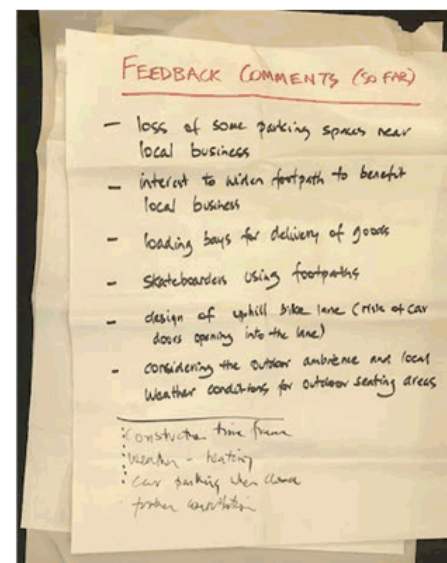 FEEDBACK COMMENTS (SO FAR)
- loss of some parking spaces near
local business
- interest to widen footpath to benefit
local business
- loading bays for delivery of goods
- skateboarders using footpaths
- design of uphill bike lane (risk of car
doors opening into the lane)
- considering the outdoor ambience and local
weather conditions for outdoor seating areas
construction time frame
weather - heating
car parking when closed
further consultation